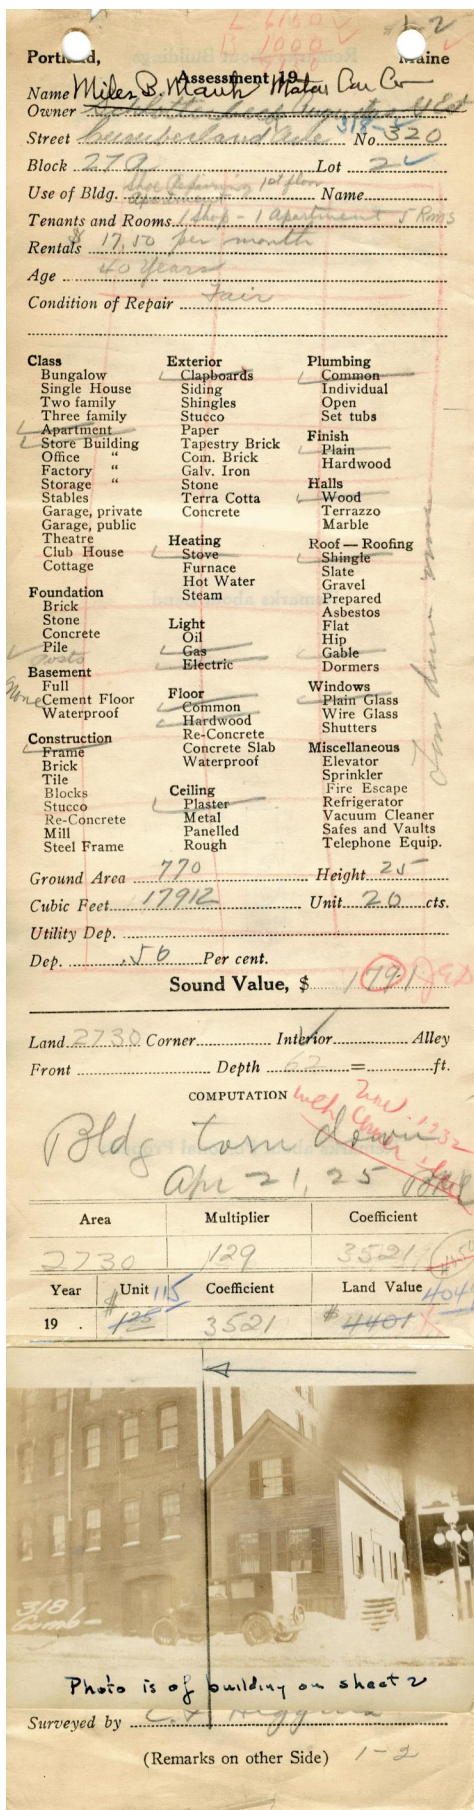 L 6150
B 1000
1-2
Portland, Maine
Assessment 19
Name Miles B. Mank Motor Car Co
Owner
Street Cumberland Ave 318- No. 320
Block 27A Lot 2
Use of Bldg. Shoe Repairing 1st floor Apartment Name
Tenants and Rooms 1 Shop - 1 Apartment 5 Rms
Rentals $17.50 per month
Age 40 Years
Condition of Repair Fair
Class
Bungalow
Single House
Two family
Three family
Apartment
Store Building
Office "
Factory "
Storage "
Stables
Garage, private
Garage, public
Theatre
Club House
Cottage
Foundation
Brick
Stone
Concrete
Pile
Posts
Basement
None
Full
Cement Floor
Waterproof
Construction
Frame
Brick
Tile
Blocks
Stucco
Re-Concrete
Mill
Steel Frame
Exterior
Clapboards
Siding
Shingles
Stucco
Paper
Tapestry Brick
Com. Brick
Galv. Iron
Stone
Terra Cotta
Concrete
Heating
Stove
Furnace
Hot Water
Steam
Light
Oil
Gas
Electric
Floor
Common
Hardwood
Re-Concrete
Concrete Slab
Waterproof
Ceiling
Plaster
Metal
Panelled
Rough
Plumbing
Common
Individual
Open
Set tubs
Finish
Plain
Hardwood
Halls
Wood
Terrazzo
Marble
Roof — Roofing
Shingle
Slate
Gravel
Prepared
Asbestos
Flat
Hip
Gable
Dormers
Windows
Plain Glass
Wire Glass
Shutters
Miscellaneous
Elevator
Sprinkler
Fire Escape
Refrigerator
Vacuum Cleaner
Safes and Vaults
Telephone Equip.
Ground Area 770 Height 25
Cubic Feet 17912 Unit 20 cts.
Utility Dep.
Dep. .50 Per cent.
Sound Value, $ 1791
Land 2730 Corner Interior Alley
Front Depth 62 = ft.
COMPUTATION
Nov. 1932
Bldg torn down
Apr 21, 25
Area Multiplier Coefficient
2730 129 3521
Year Unit Coefficient Land Value
19 . $ 125 115 3521 $ 4401 404
318
Cumb-
Photo is of building on sheet 2
Surveyed by C. F. Higgins
(Remarks on other Side) 1-2